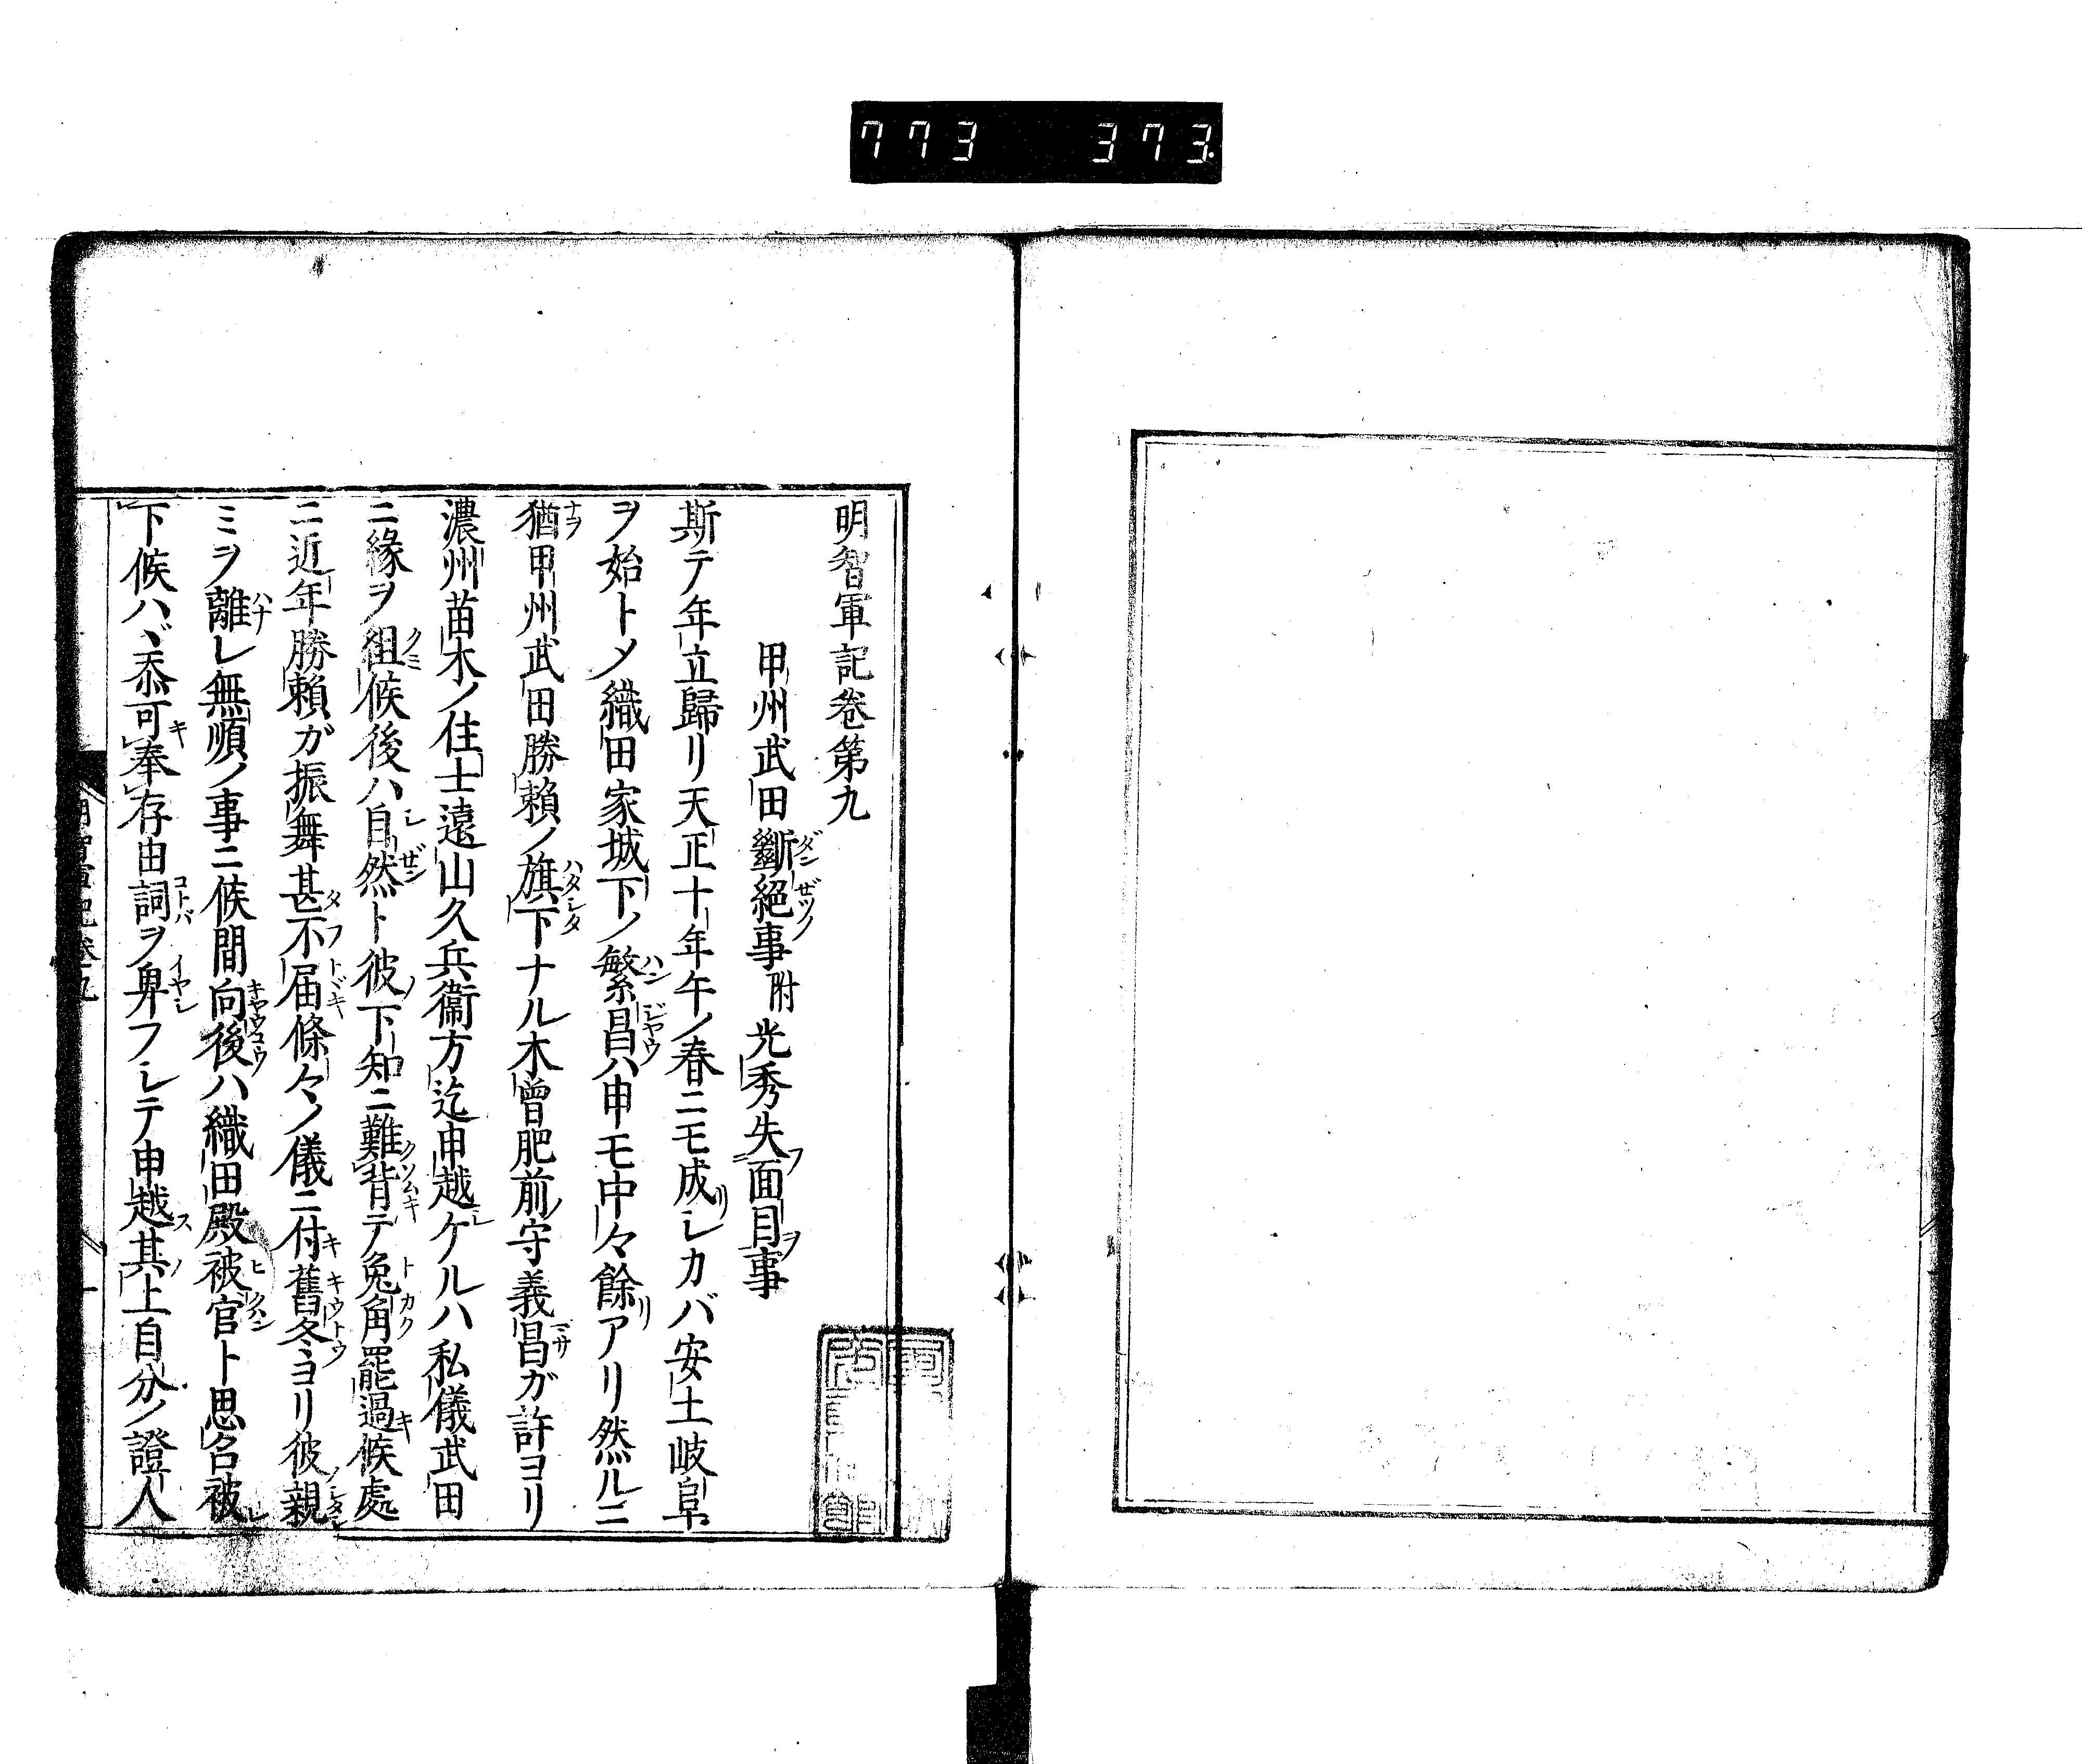 773 373
明智軍記卷第九
甲州武田斷絕事附光秀失面目事
斯テ年立歸リ天正十年午ノ春ニモ成シカバ安土岐阜
ヲ始トメ織田家城下ノ繁昌ハ申モ中々餘アリ然ルニ
猶甲州武田勝賴ノ旗下ナル木曾肥前守義昌ガ許ヨリ
濃州苗木ノ住士遠山久兵衞方迄申越ケルハ私儀武田
ニ緣ヲ徂候後ハ自然ト彼下知ニ難背テ兔角罷過候處
ニ近年勝賴ガ振舞甚不届條々ノ儀ニ付舊冬ヨリ彼親
ミヲ離レ無順ノ事ニ候間向後ハ織田殿被官ト思召被
下候ハヾ忝可奉存由詞ヲ卑フシテ申越其上自分ノ證人
明智軍記卷九
一